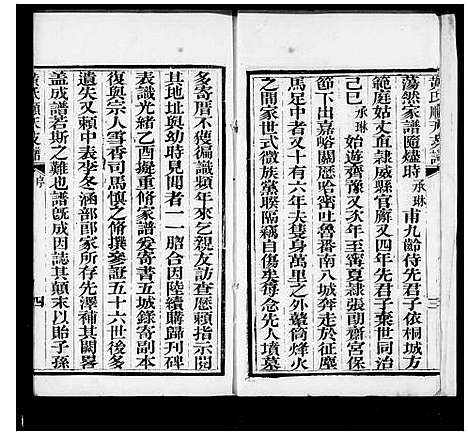 黄氏順天支譜
三
蕩然家譜隨燼時承琳甫九齡侍先君子依桐城方
範庭姑丈直隸威縣官廨又四年先君子棄世同治
己巳承琳始遊齊豫又次年至甯夏隸張朗齋宮保
節下出嘉峪關歷哈密吐魯番南八城奔走於征引
馬足中者十有六年夫隻身萬里之外蓽筒烽火
之間家世式微族黨睽隔竊自傷矣每念先人墳墓
多寄厝不獲徧識頻年來乞親友訪查應賴指示閱
其地址與幼時見聞者一一脗合因陸續購歸刊碑
表識光緒乙酉擬重修家譜爰寄書五城錄寄副本
復與宗人雪香司馬愼之偹撰參証五十六世後夢
遺失又賴中表李冬涵部郎家所存先澤補其闕畧
盖成譜若斯之難也譜旣成因誌其顛末以貽子孫
黄氏順天支譜
序
四